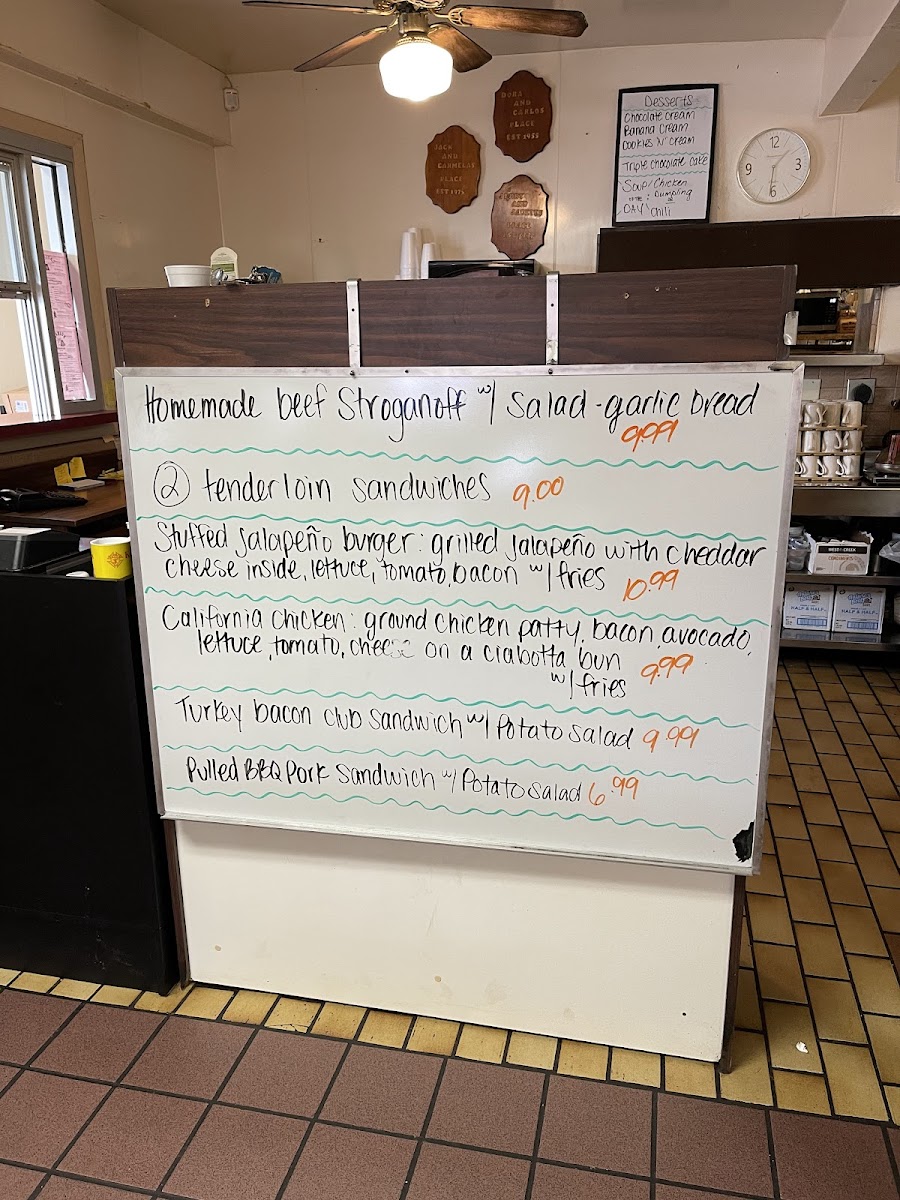 DORA
AND
CARLOS
PLACE
EST 1955
JACK
AND
CARMELA'S
PLACE
EST 1975
AND
Desserts
Chocolate cream
Banana cream
Cookies 'N' cream
Triple Chocolate Cake
Soup / Chicken
OF THE : Dumpling
DAY \ Chili
12
3
6
9
Homemade beef Stroganoff w/ Salad - garlic bread
9.99
② tenderloin sandwiches 9.00
Stuffed jalapeño burger: grilled jalapeño with cheddar
cheese inside, lettuce, tomato, bacon w/ fries 10.99
California chicken: ground chicken patty, bacon, avocado,
lettuce, tomato, cheese on a ciabotta bun 9.99
w/ fries
Turkey bacon club sandwich w/ Potato Salad 9.99
Pulled BBQ Pork Sandwich w/ Potato Salad 6.99
HALF & HALF
HALF & HALF